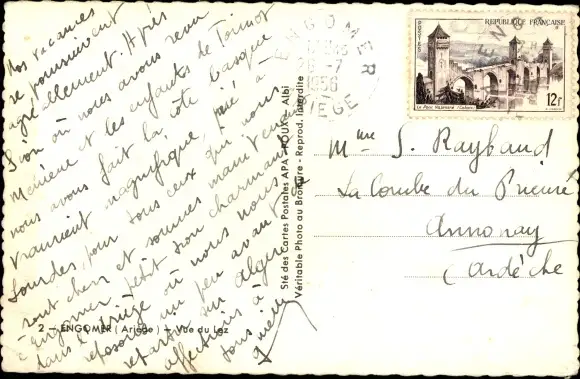 Nos vacances
se poursuivent
agréablement. Après
Lyon où nous avons revu
et les enfants de
nous avons fait la côte basque
vraiment magnifique, prié à
Lourdes, pour tous ceux qui nous
sont chers et sommes maintenant
à Engomer, petit trou charmant
dans l'Ariège où nous nous
reposons un peu avant de
repartir sur Alger
affections à
tous
2 - ENGOMER (Ariège) - Vue du Lez
Sté des Cartes Postales APA-POUX - Albi
Véritable Photo au Bromure - Reprod. Interdite
ENGOMER
26-7
1956
ARIÈGE
REPUBLIQUE FRANÇAISE
POSTES
Le Pont Valentré (Cahors)
12F
Mme S. Raybaud
La Combe du Prieuré
Annonay
(Ardèche